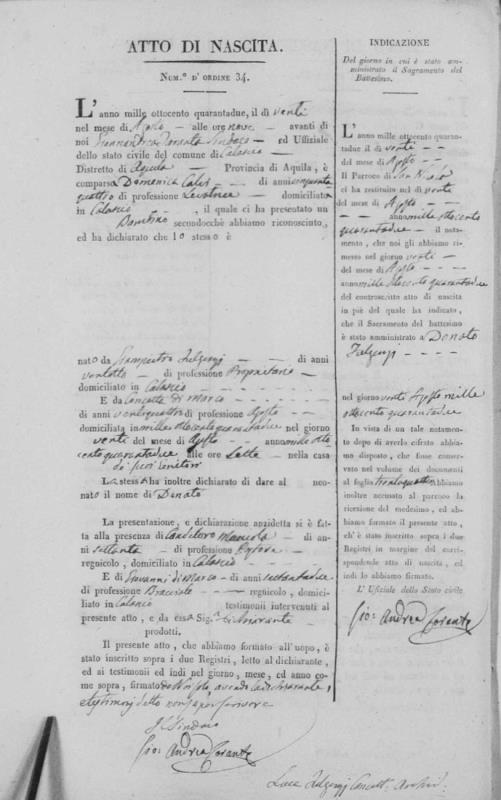 ATTO DI NASCITA.
Num.º D' ORDINE 34.
L'anno mille ottocento quarantadue, il dì venti
nel mese di Agosto - alle ore nove - avanti di
noi Giannandrea Sindaco - ed Uffiziale
dello stato civile del comune di Calascio
Distretto di Aquila - Provincia di Aquila, è
comparsa Domenica - di anni cinquanta
quattro di professione Levatrice - domiciliata
in Calascio - , il quale ci ha presentato un
Bambino secondocchè abbiamo riconosciuto,
ed ha dichiarato che lo stesso è
nato da Giampietro - di anni
ventotto - di professione Proprietario -
domiciliato in Calascio - - - - -
E da Concetta di Marco - - - - -
di anni ventiquattro di professione
domiciliata in mille ottocento quarantadue nel giorno
venti del mese di Agosto - anno mille otto
cento quarantadue alle ore Sette - nella casa
de' suoi Genitori
La stessa ha inoltre dichiarato di dare al neo-
nato il nome di Donato
La presentazione, e dichiarazione anzidetta si è fat-
ta alla presenza di - di an-
ni settanta - di professione
regnicolo, domiciliato in Calascio
E di Giovanni di Marco - di anni settantadue
di professione Bracciale - - regnicolo, domici-
liato in Calascio testimonii intervenuti al
presente atto, e da essa Sig.ª
prodotti.
Il presente atto, che abbiamo formato all'uopo, è
stato inscritto sopra i due Registri, letto al dichiarante,
ed ai testimonii ed indi nel giorno, mese, ed anno co-
me sopra, firmato da Noi solo, avendo la dichiarante,
e testimonj detto non saper scrivere
Il Sindaco
Gio: Andrea
INDICAZIONE
Del giorno in cui è stato am-
ministrato il Sagramento del
Battesimo.
L'anno mille ottocento quaran-
tadue il dì venti - -
del mese di Agosto - -
Il Parroco di San Nicola
ci ha restituito nel dì venti
del mese di Agosto - - -
- - anno mille ottocento
quarantadue - il nota-
mento, che noi gli abbiamo ri-
messo nel giorno venti -
del mese di Agosto - - -
anno mille ottocento quarantadue
del controscritto atto di nascita
in piè del quale ha indicato,
che il Sacramento del battesimo
è stato amministrato a Donato
nel giorno venti Agosto mille
ottocento quarantadue
In vista di un tale notamento
dopo di averlo cifrato abbia-
mo disposto, che fusse conser-
vato nel volume dei documenti
al foglio trentaquattro abbiamo
inoltre accusato al parroco la
ricezione del medesimo, ed ab-
biamo formato il presente atto,
ch'è stato inscritto sopra i due
Registri in margine del corri-
spondente atto di nascita, ed
indi lo abbiamo firmato.
L'Ufiziale dello Stato civile
Gio: Andrea